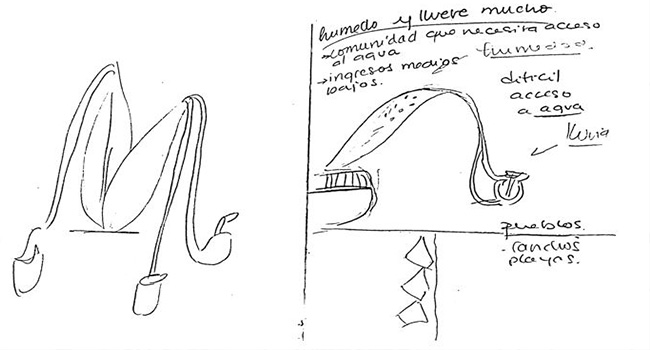 humedo y llueve mucho.
→comunidad que necesita acceso
al agua
→ingresos medios
bajos.
humedad.
dificil
acceso
a agua
lluvia
pueblos.
ranchos
playas.